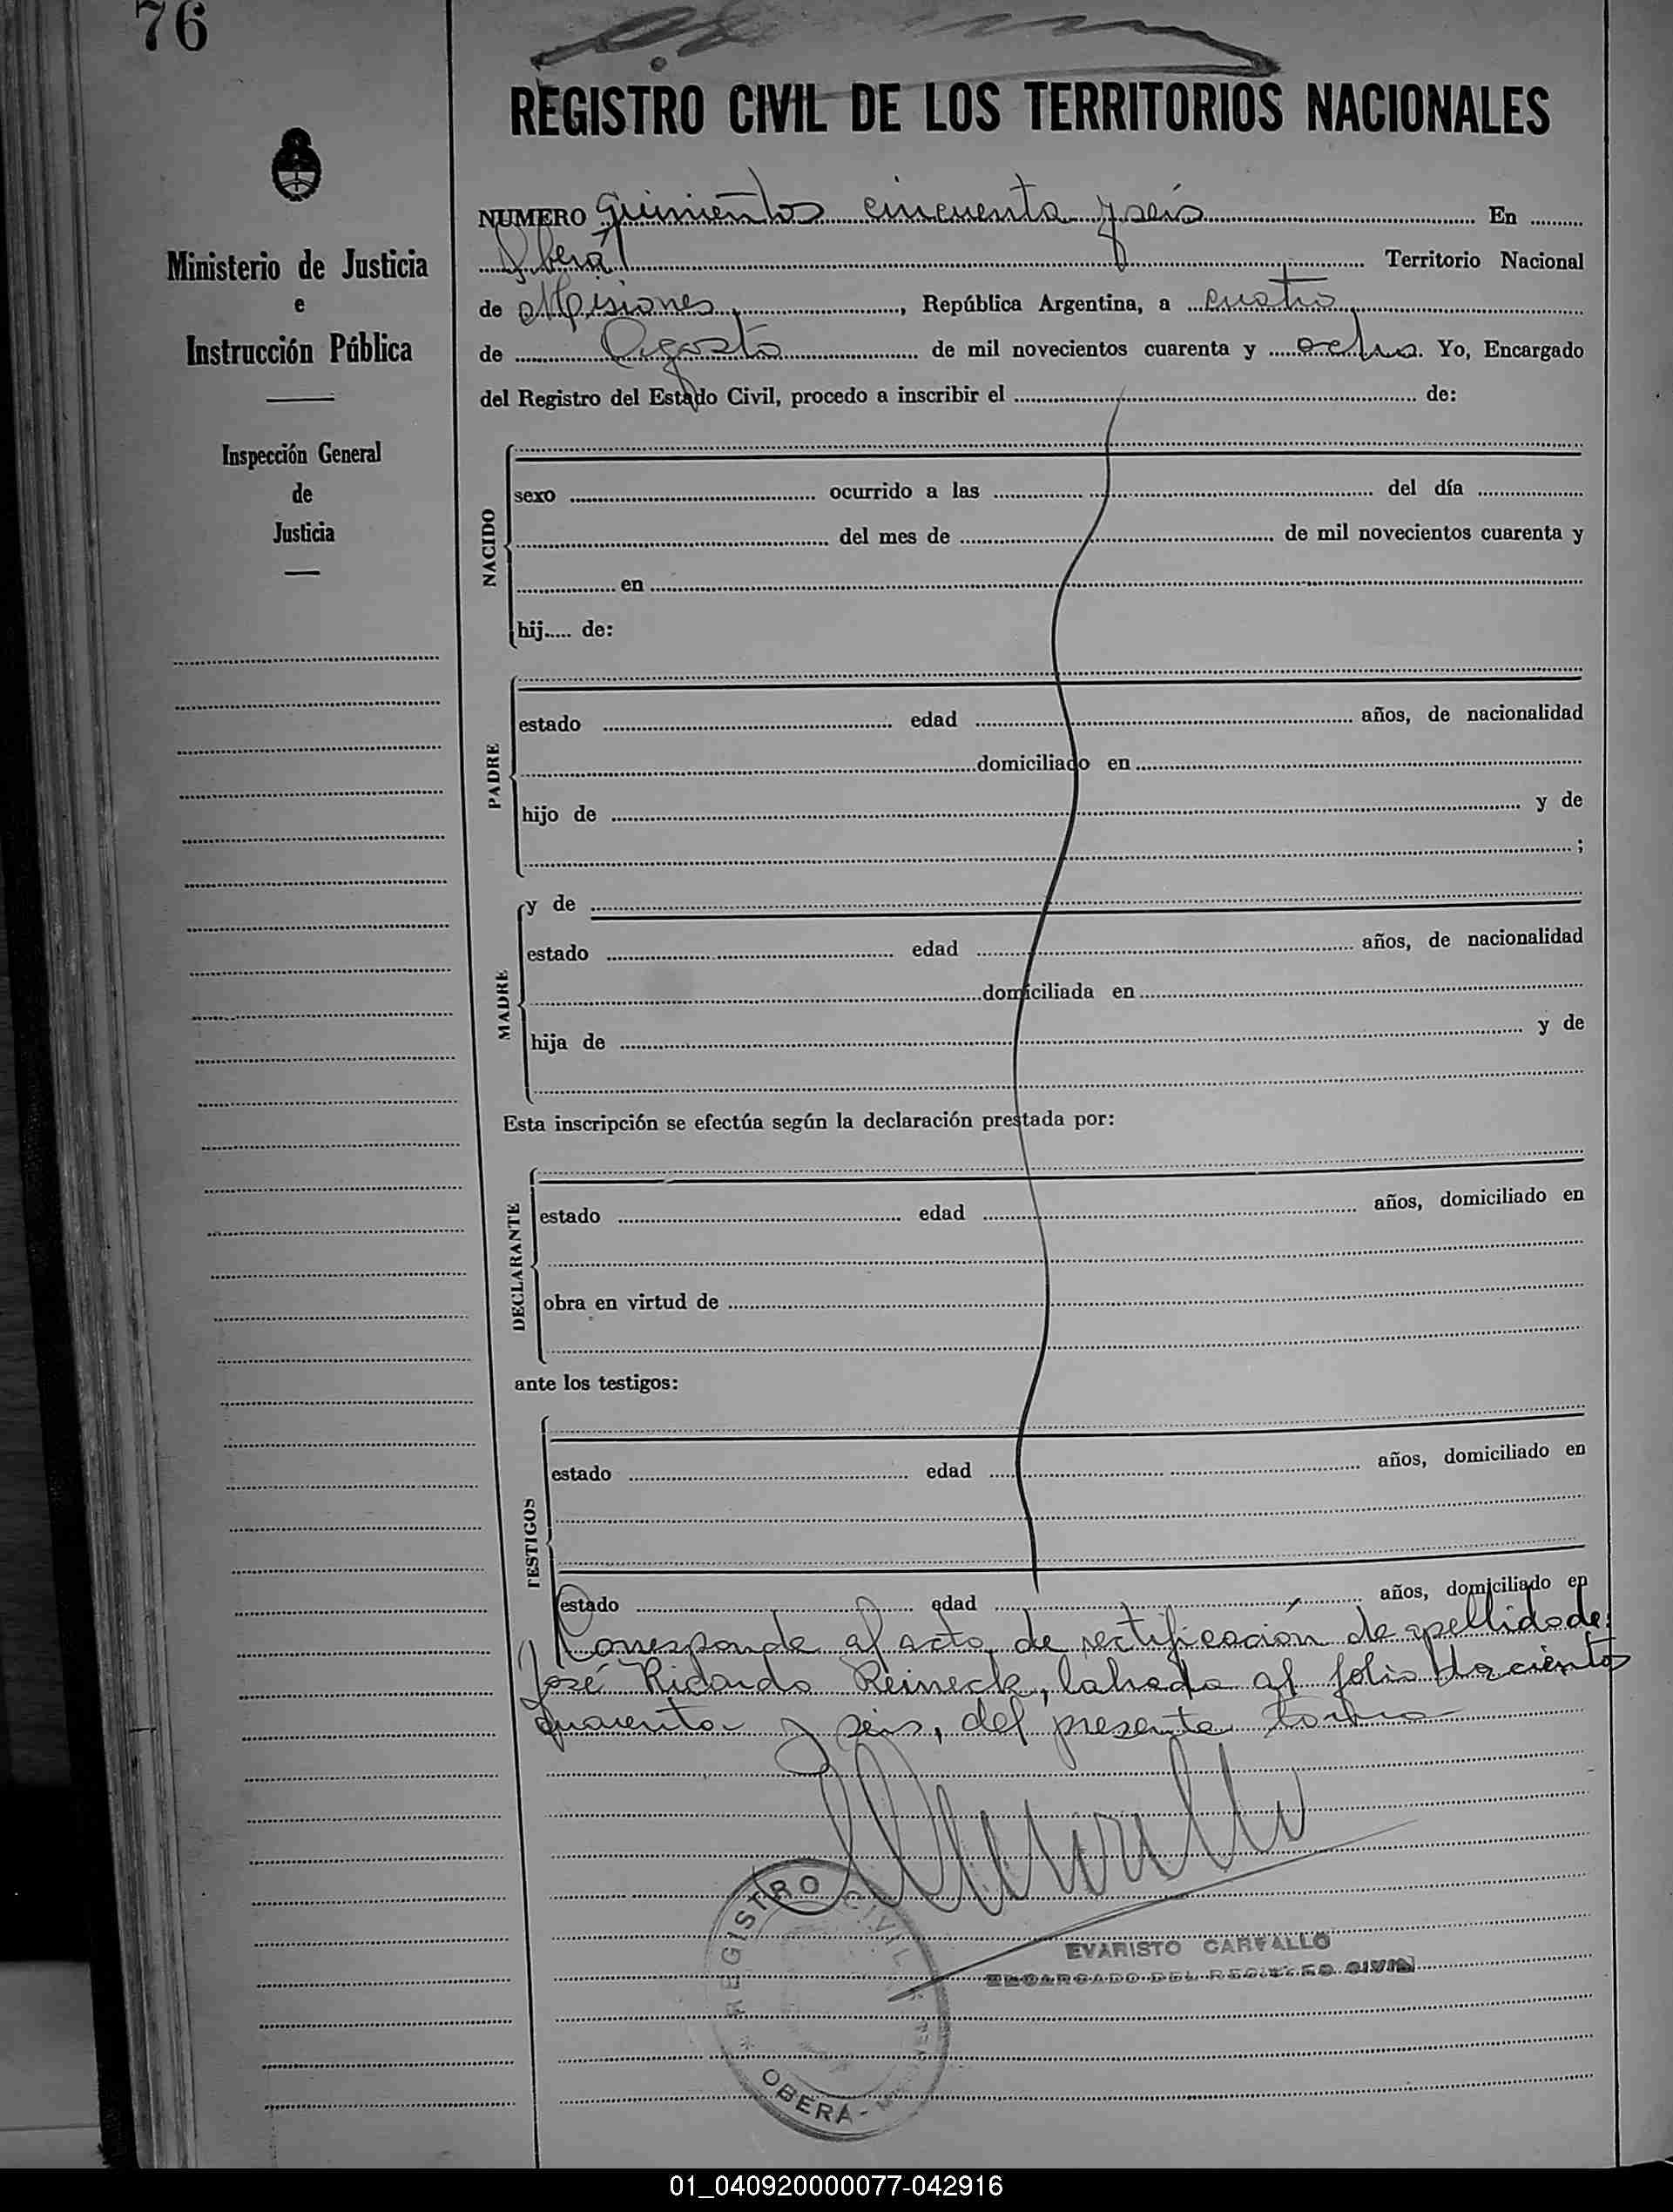 76
REGISTRO CIVIL DE LOS TERRITORIOS NACIONALES
Ministerio de Justicia
e
Instrucción Pública
Inspección General
de
Justicia
NUMERO quinientos cincuenta y seis En
Oberá Territorio Nacional
de Misiones, República Argentina, a cuatro
de Agosto de mil novecientos cuarenta y ocho. Yo, Encargado
del Registro del Estado Civil, procedo a inscribir el de:
NACIDO
sexo ocurrido a las del día
del mes de de mil novecientos cuarenta y
en
hij..... de:
PADRE
estado edad años, de nacionalidad
domiciliado en
hijo de y de
;
MADRE
y de
estado edad años, de nacionalidad
domiciliada en
hija de y de
Esta inscripción se efectúa según la declaración prestada por:
DECLARANTE
estado edad años, domiciliado en
obra en virtud de
ante los testigos:
TESTIGOS
estado edad años, domiciliado en
estado edad años, domiciliado en
Corresponde al acta de rectificación de apellido de
José Ricardo Reineck, labrada al folio docientos
cuarenta y seis, del presente tomo
REGISTRO CIVIL
OBERÁ -
EVARISTO CARVALLO
ENCARGADO DEL REGISTRO CIVIL
01_040920000077-042916